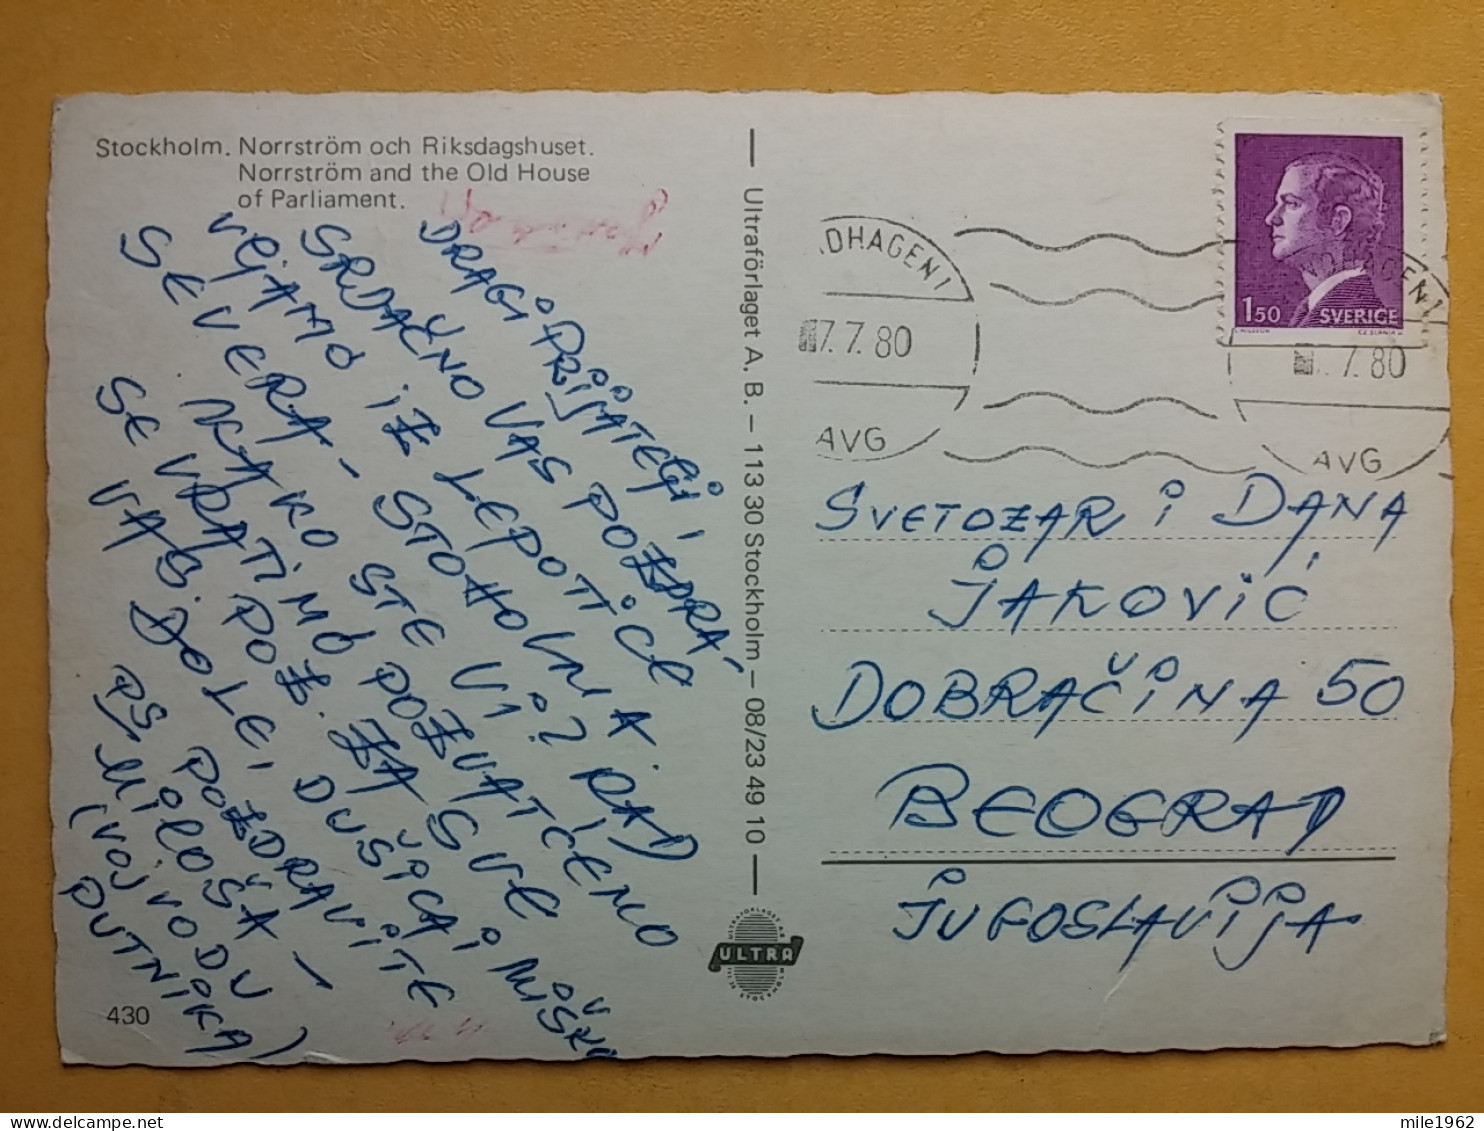 Stockholm. Norrström och Riksdagshuset.
Norrström and the Old House
of Parliament.
DRAGI PRIJATELJI
SRDAČNO VAS POZDRA-
VLJAMO IZ LEPOTICE
SEVERA - STOHOLMA.
KAKO STE VI? KAD
SE VRATIMO POZVAĆEMO
VAS. POZ. ZA SVE
DOLE I DUŠICA I MIŠKO
PS. POZDRAVITE
MILOŠA -
(VOJVODU
PUTNIKA)
430
Ultraförlaget A. B. – 113 30 Stockholm – 08/23 49 10
ULTRA
NDHAGEN1
7.7.80
AVG
NDHAGEN1
7.80
AVG
1.50 SVERIGE
SVETOZAR I DANA
JAKOVIĆ
DOBRAČINA 50
BEOGRAD
JUGOSLAVIJA
mile1962